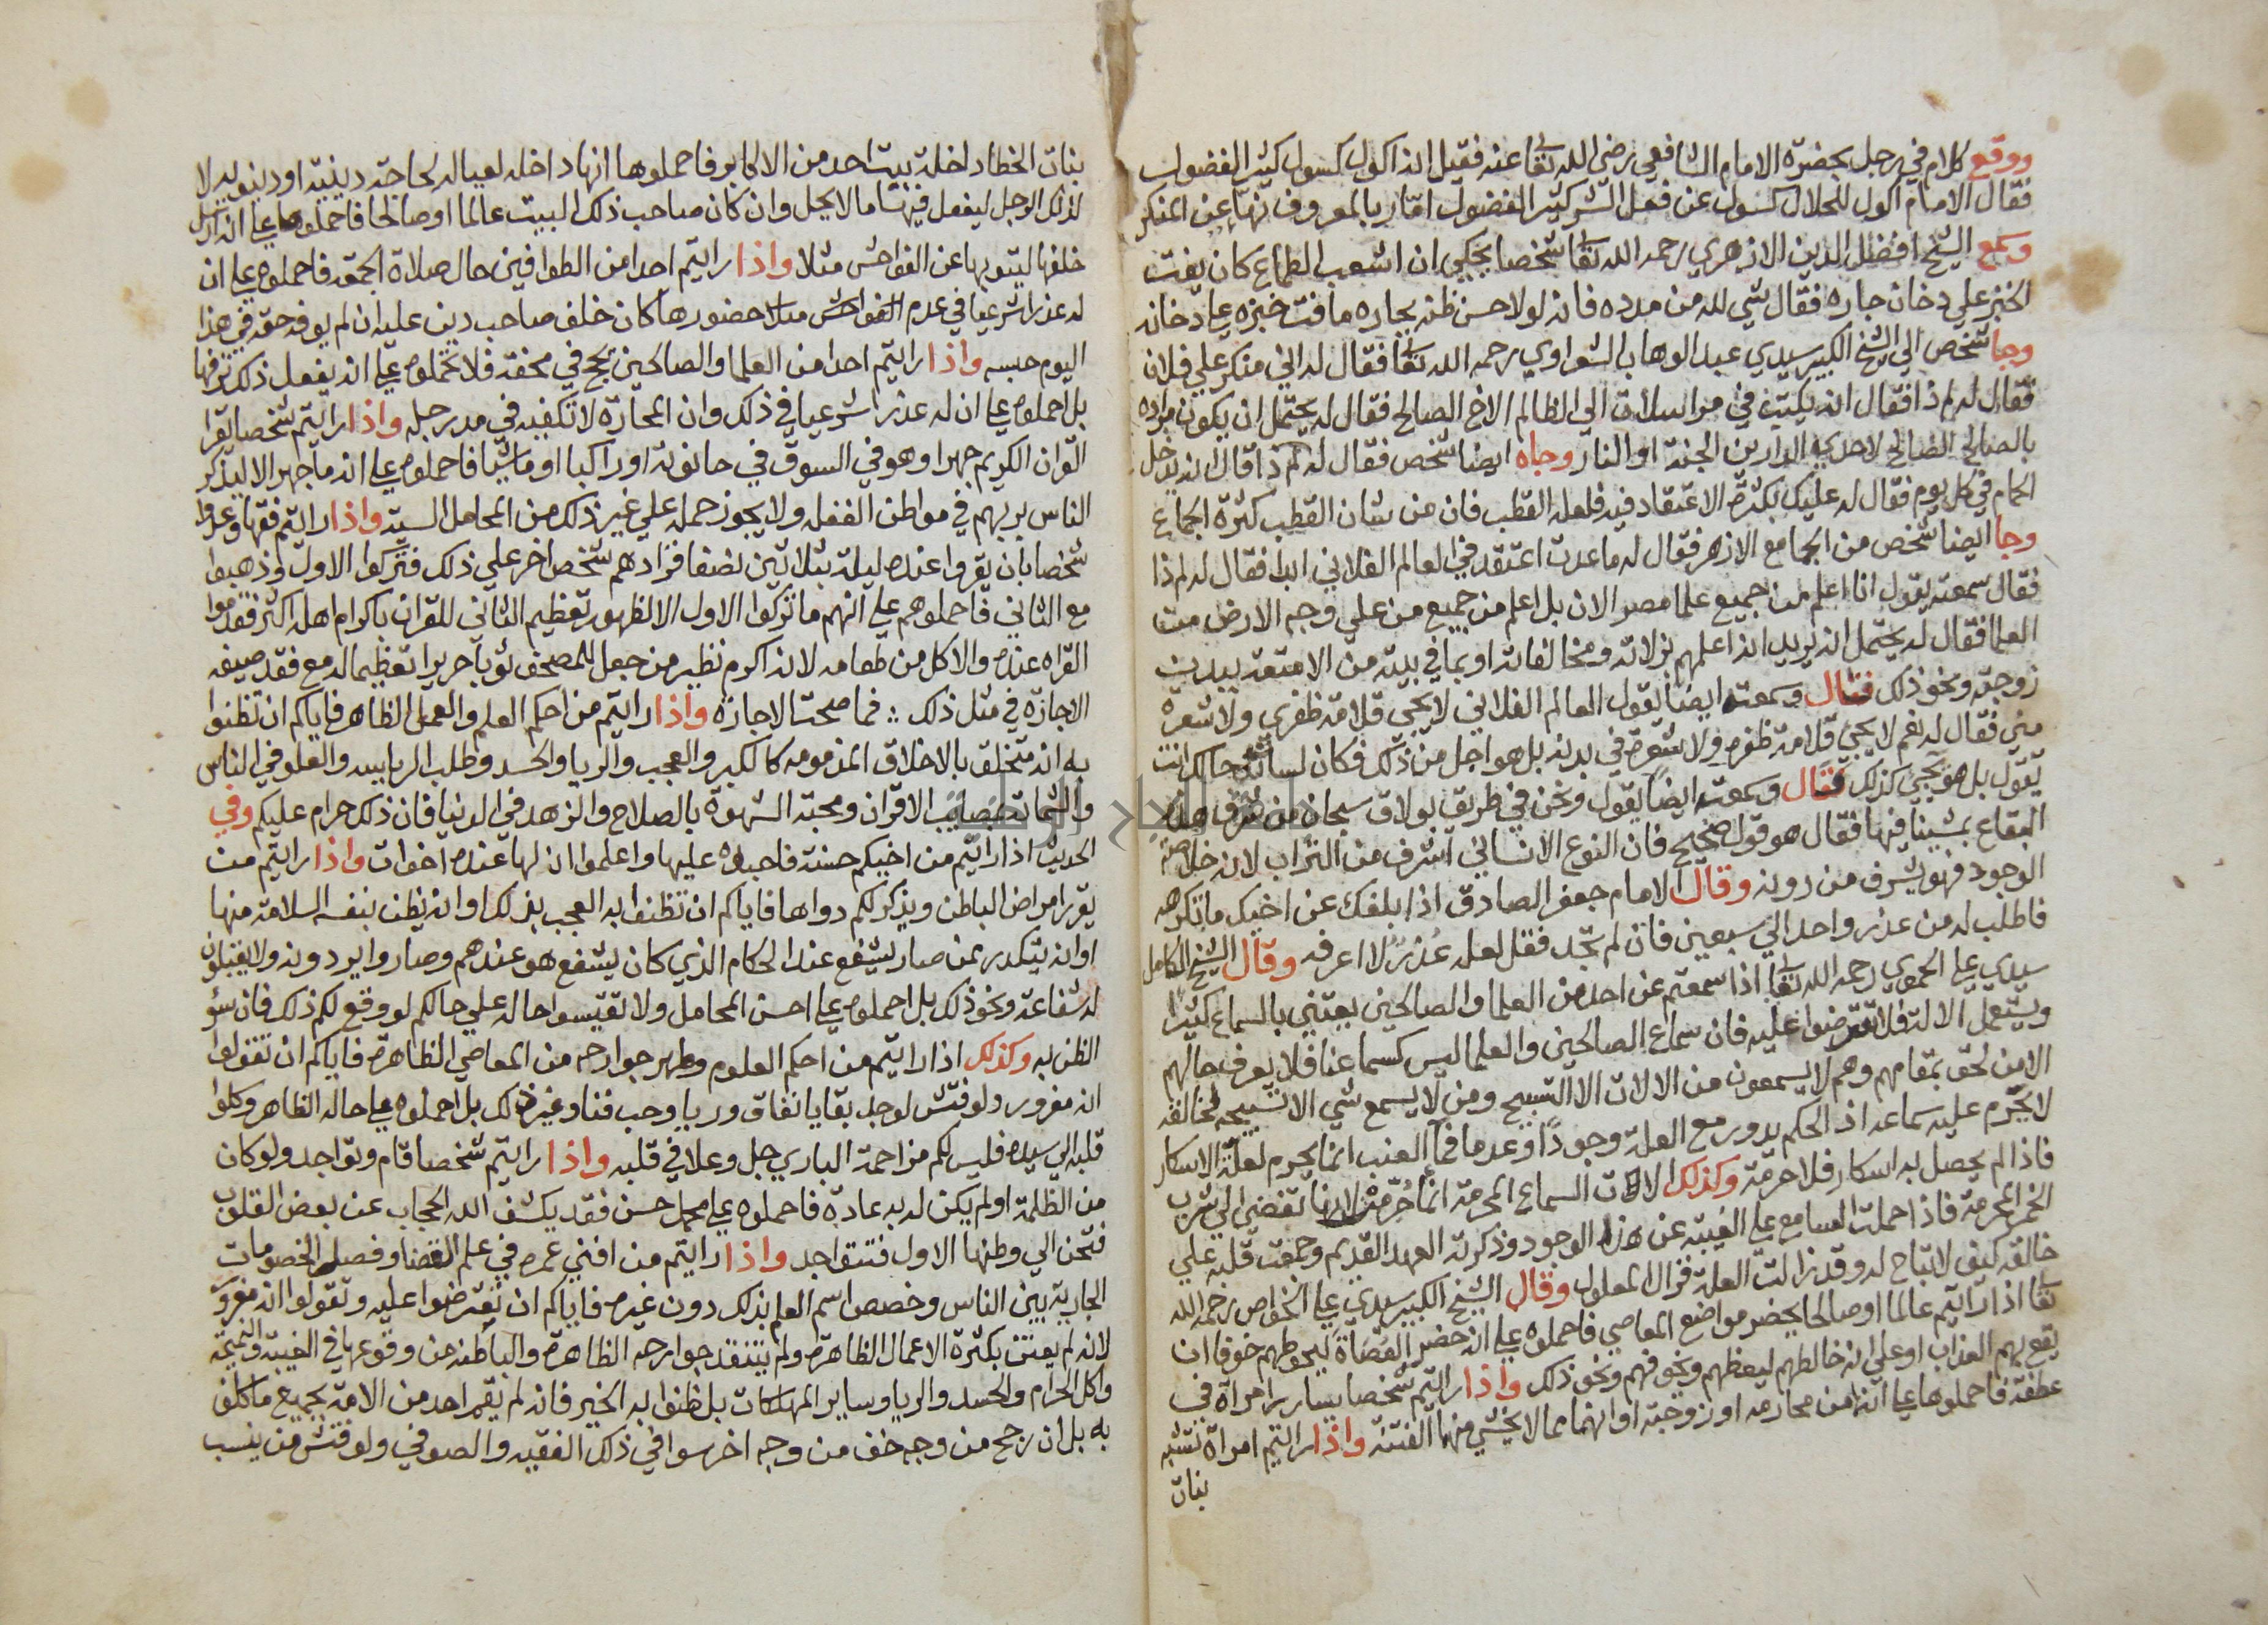 ووقع كلام في رجل بحضرة الامام الشافعي رضي الله تعا عنه فقيل انه اكول كسول كثير الفضول
فقال الامام اكول للحلال كسول عن فعل الشر كثير الفضول امار بالمعروف نهاء عن المنكر
وسمع الشيخ افضل الدين الازهري رحمه الله تعا شخصا يحكي ان اشعب الطماع كان يفت
الخبز علي دخان جاره فقال شي لله من مدده فانه لولا حسن ظنه بجاره ما فت خبزه علي دخانه
وجا شخص الي الشيخ الكبير سيدي عبد الوهاب الشعراوي رحمه الله تعا فقال له اني منكر علي فلان
فقال له لم ذا فقال انه يكتب في مراسلات الي الظالم الاخ الصالح فقال له يحتمل ان يكون مراده
بالصالح الصالح لاحدي الدارين الجنة او النار وجاه ايضا شخص فقال له لم ذا قال انه يدخل
الحمام في كل يوم فقال له عليك بكثرة الاعتقاد فيه فلعله القطب فان من شان القطب كثرة الجماع
وجا ايضا شخص من الجامع الازهر فقال له ما عدت اعتقد في العالم الفلاني ابدا فقال له لم ذا
فقال سمعته يقول انا اعلم من جميع علما مصر الان بل اعلم من جميع من علي وجه الارض من
العلما فقال له يحتمل انه يريد انه اعلمهم بزلاته ومخالفاته او بما في بيته من الامتعة ببدن
زوجته ونحو ذلك فقال وسمعته ايضا يقول العالم الفلاني لا يجي قلامة ظفري ولا شعرة
مني فقال له نعم لا يجي قلامة ظفره ولا شعرة في بدنه بل هو اجل من ذلك فكان لسانه حالك انت
تقول بل هو يجي كذلك فقال وسمعته ايضا يقول ونحن في طريق بولاق سبحان من شرف هذه
البقاع بمشينا فيها فقال هو قول صحيح فان النوع الانساني اشرف من التراب لانه خلاصة
الوجود فهو يشرف من دونه وقال الامام جعفر الصادق اذا بلغك عن اخيك ما تكرهه
فاطلب له من عذر واحد الي سبعين فان لم تجد فقل لعله عذر لا اعرفه وقال الشيخ الكامل
سيدي علي الحموي رحمه الله تعا اذا سمعتم عن احد من العلما والصالحين يعتني بالسماع كثيرا
ويستعمل الالة فلا تعترضوا عليه فان سماع الصالحين والعلما ليس كسماعنا فلا يعرف حالهم
الا من لحق بمقامهم وهم لا يسمعون من الالات الا التسبيح ومن لا يسمع شي الا تسبيحه لخالقه
لا يحرم عليه سماعه اذ الحكم يدور مع العلة وجودا وعدما فماء العنب انما يحرم لعلة الاسكار
فاذا لم يحصل به اسكار فلا حرمة وكذلك الالات السماع المحرمة انما حرمت لانها تفضي الي شرب
الخمر المحرمة فاذا حملت السامع علي الغيبة عن هذا الوجود وذكرته العهد القديم وجمعت قلبه علي
خالقه كيف لا تباح له وقد زالت العلة فزال المعلول وقال الشيخ الكبير سيدي علي الخواص رحمه الله
تعا اذا رايتم عالما او صالحا يحضر مواضع المعاصي فاحملوه علي انه حضر القضاة ليحوطهم خوفا ان
يقع بهم العذاب او علي انه خالطهم ليعظهم ويخوفهم ونحو ذلك واذا رايتم شخصا يسارر امراة في
عطفة فاحملوها علي انها من محارمه او زوجته او انهما مما لا يخشي منها الفتنة واذا رايتم امراة تشبه
بنات
بنات الخطا داخلة بيت احد من الاكابر فاحملوها انها داخله لعياله لحاجة دينية او دنيويه لا
لذلك الرجل ليفعل فيها ما لا يحل وان كان صاحب ذلك البيت عالما او صالحا فاحملوها علي انه ارسل
خلفها ليتوبها عن الفواحش مثلا واذا رايتم احدا من الطوافين حال صلاة الجمعة فاحملوه علي ان
له عذرا شرعيا في عدم الفواحش مثلا حضورها كان خلف صاحب دين عليه ان لم يوفه حقه في هذا
اليوم حبسه واذا رايتم احدا من العلما والصالحين يحج في محفة فلا تحملوه علي انه يفعل ذلك ترفها
بل احملوه علي ان له عذرا شرعيا في ذلك وان المحارة لا تكفيه في مد رجله واذا رايتم شخصا يقرا
القران الكريم جهرا وهو في السوق في حانوته او راكبا او ماشيا فاحملوه علي انه ما جهر الا ليذكر
الناس بربهم في مواطن الغفله ولا يجوز حمله علي غير ذلك من المحامل السيئة واذا رايتم فقها وعدوا
شخصا بان يقروا عنده ليلة بثلاثين نصفا فزادهم شخص اخر علي ذلك فتركوا الاول وذهبوا
مع الثاني فاحملوهم علي انهم ما تركوا الاول الا لظهور تعظيم الثاني للقران باكرام اهله اكثر فقدموا
القراه عنده والاكل من طعامه لانه اكرم نظير من جعل للمصحف ثوبا حريرا تعظيما له مع فقد صيغه
الاجازة في مثل ذلك فما صحت الاجازة واذا رايتم من احكم العلم والعمل الظاهر فاياكم ان تظنوا
به انه متخلق بالاخلاق المذمومه كالكبر والعجب والريا والحسد وطلب الرياسه والعلو في الناس
والشماتة بمصايب الاقران ومحبة الشهوة بالصلاح والزهد في الدنيا فان ذلك حرام عليكم وفي
الحديث اذا رايتم من اخيكم حسنة فاحبوه عليها واعلموا ان لها عنده اخوات واذا رايتم من
يقرر امراض الباطن ويذكر لكم دواها فاياكم ان تظنوا به العجب بذلك او انه يظن بنفسه السلامة منها
او انه يتكدر ممن صار يشفع عند الحكام الذي كان يشفع هو عندهم وصاروا يردونه ولا يقبلون
له شفاعة ونحو ذلك بل احملوه علي احسن المحامل ولا تقيسوا حاله علي حالكم لو وقع لكم ذلك فان سؤ
الظن به وكذلك اذا رايتم من احكم العلوم وطهر جوارحه من المعاصي الظاهرة فاياكم ان تقولوا
انه مغرور ولو فتش لوجد بقايا نفاق وريا وحب ثنا وغير ذلك بل احملوه علي حاله الظاهر وكلوا
قلبه الي سيده فليس لكم مزاحمة الباري جل وعلا في قلبه واذا رايتم شخصا قام وتواجد ولو كان
من الظلمة او لم يكن له به عادة فاحملوه علي محمل حسن فقد يكشف الله الحجاب عن بعض القلوب
فتحن الي وطنها الاول فتتواجد واذا رايتم من افني عمره في علم القضا وفصل الخصومات
الجارية بين الناس وخصص اسم العلم بذلك دون غيره فاياكم ان تعترضوا عليه وتقولوا انه مغرور
لانه لم يعتن بكثرة الاعمال الظاهرة ولم يتفقد جوارحه الظاهرة والباطنه من وقوعها في الغيبة والنميمة
واكل الحرام والحسد والريا وساير المهلكات بل ظنوا به الخير فانه لم يقم احد من الامة بجميع ما كلف
به بل ان رجح من وجه خف من وجه اخر سوا في ذلك الفقيه والصوفي ولو فتش من ينسب